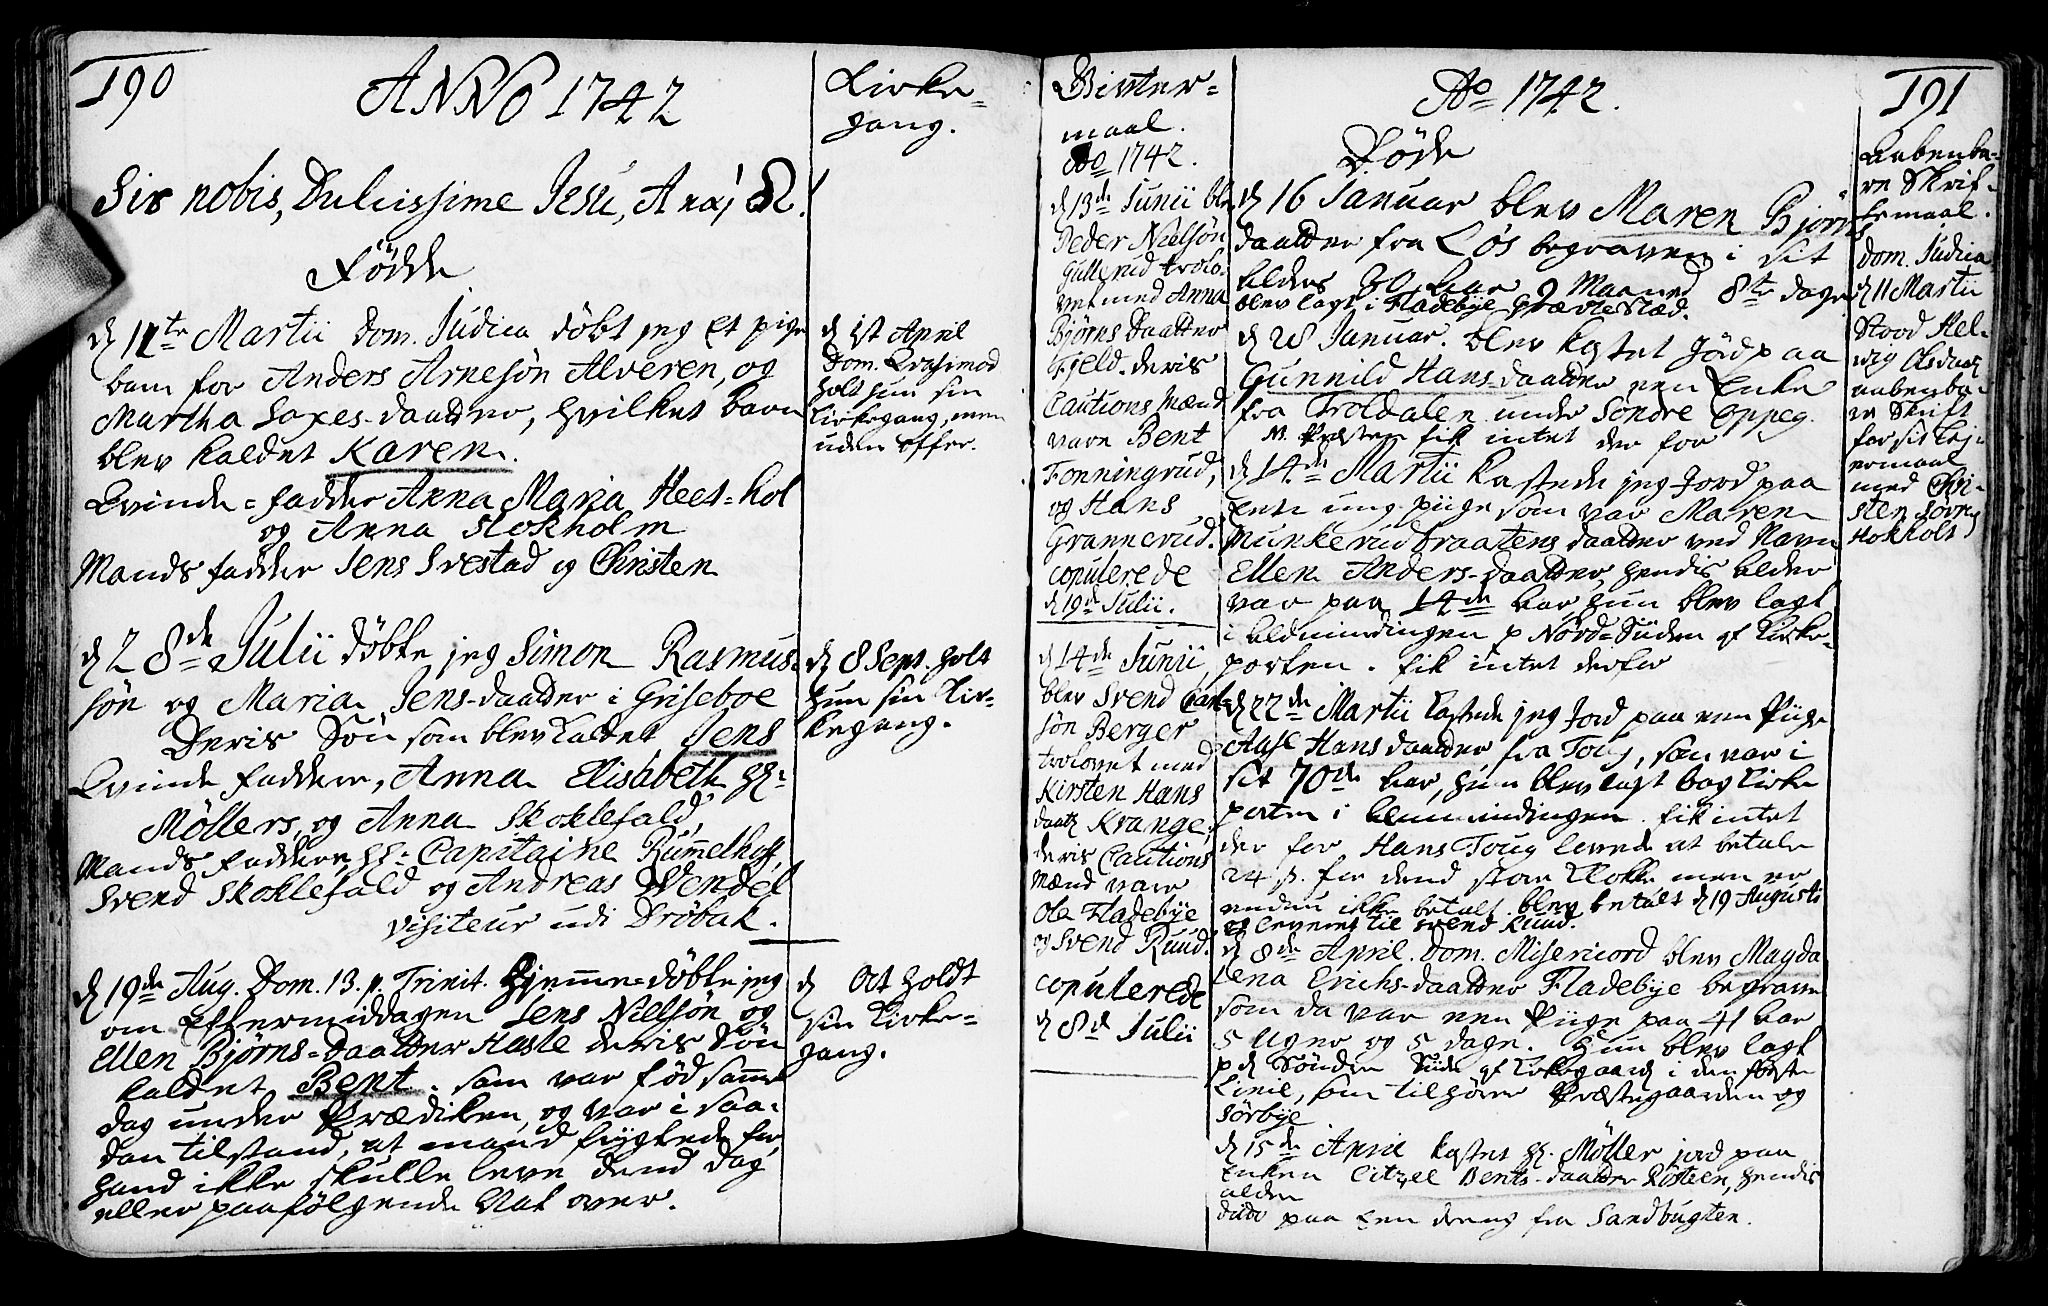 190
ANNO 1742
Sis nobis, Dulcissime Jesu, A & Ω.
Fødde
d 11te Martii Dom. Judica døbt jeg et pige
barn for Anders Arnesøn Alveren, og
Martha Saxes-daatter, hvilket barn
blev kaldet Karen.
Qvinde-fadder Anna Maria Hees-hol
og Anna Stokholm
Mands fadder Jens Svestad og Christen
d 28de Julii døbte jeg Simon Rasmus-
søn og Maria Jens-daatter i Griseboe
Deris Søn som blev kaldet Jens
Qvinde faddere, Anna Elisabeth Hr
Møllers, og Anna Skoklefald,
Mands faddere, Hr Capitaine Rummelhoff,
Svend Skoklefald og Andreas Wendel
visiteur udi Drøbak.
d 19de Aug. Dom. 13. p. Trinit. hjemme-døbte jeg
om Eftermiddagen Jens Nielsøn og
Ellen Bjørns-daatter Hasle deris Søn
kaldet Bent. som var fød samme
dag under Prædiken, og var i saa-
dan tilstand, at mand frygtede for
hand ikke skulle leve dend dag
eller paafølgende Nat over.
Kirke-
gang.
d 1st April
Dom. Qvasimod
holt hun sin
kirkegang, men
uden offer.
d 8 Sept. holt
hun sin kir-
kegang.
d Oct holdt
sin kirke-
gang.
maal.
Ao 1742.
d 13de Junii blev
Peder Nielsøn
Gullerud trolo-
vet med Anna
Bjørns Daatter
Fjeld. deris
Cautions Mænd
vare Bent
Fonningrud,
og Hans
Grannerud.
copulerede
d 19de Julii.
d 14de Junii,
blev Svend Carl-
søn Berger
trolovet med
Kirsten Hans
daatr Krange,
deris Cautions
Mænd vare
Ole Fladebye
og Svend Ruud.
copulerede
d 8de Julii
Ao 1742.
Døde
d 16 Januar blev Maren Bjørns
daatter fra Løs begraven i sit
alders 30 Aar 9 Maaned 8te dage
blev lagt i Fladebye Stæd.
d 28 Januar. blev kastet Jord paa
Gunnild Hans-daatter een Enke
fra Troldalen under Søndre Oppeg.
N. Præsten fik intet der for
d 14de Martii kastede jeg Jord paa
Een ung piige som var Maren
Munkerudbraatens daatter ved Navn
Ellen Anders-daatter, hendis alder
var paa 14de Aar, hun blev lagt
i Almindingen p Nord-Siiden af Kirke-
porten. fik intet derfor
d 22de Martii kastede jeg Jord paa een Piige
Aase Hansdaatter, fra Toug, som var i
sit 70de Aar, hun blev lagt bag Kirke
porten i Almindingen. fik intet
der for Hans Toug lovede at betale
24 s. for dend store Klokke men er
endnu ikke betalt. blev betalt d 19 Augusti
og leveret til Svend Ruud.
d 8de April. Dom. Misericord blev Magda
lena Erichs-daatter Fladebye begraven
som da var een Piige paa 41 Aar
5 Uger og 5 dage. Hun blev lagt
p d Søndre Side af Kirkegaard i den første
Linie, som tilhører Præstegaarden og
Sørbye
d 15de April kastet Hr. Møller jord paa
Enken Citzel Bents-daatter Røsteen, hendis
alder
døde paa Een dreng fra Sandbugten.
191
Aabenba-
re Skrif-
temaal.
Dom. Judica
d 11 Martii
Stood Hel-
vig Olsdaatr
aabenba-
re Skrift
for sit Lej-
ermaal
med Chri-
sten Sørens
Hokholt